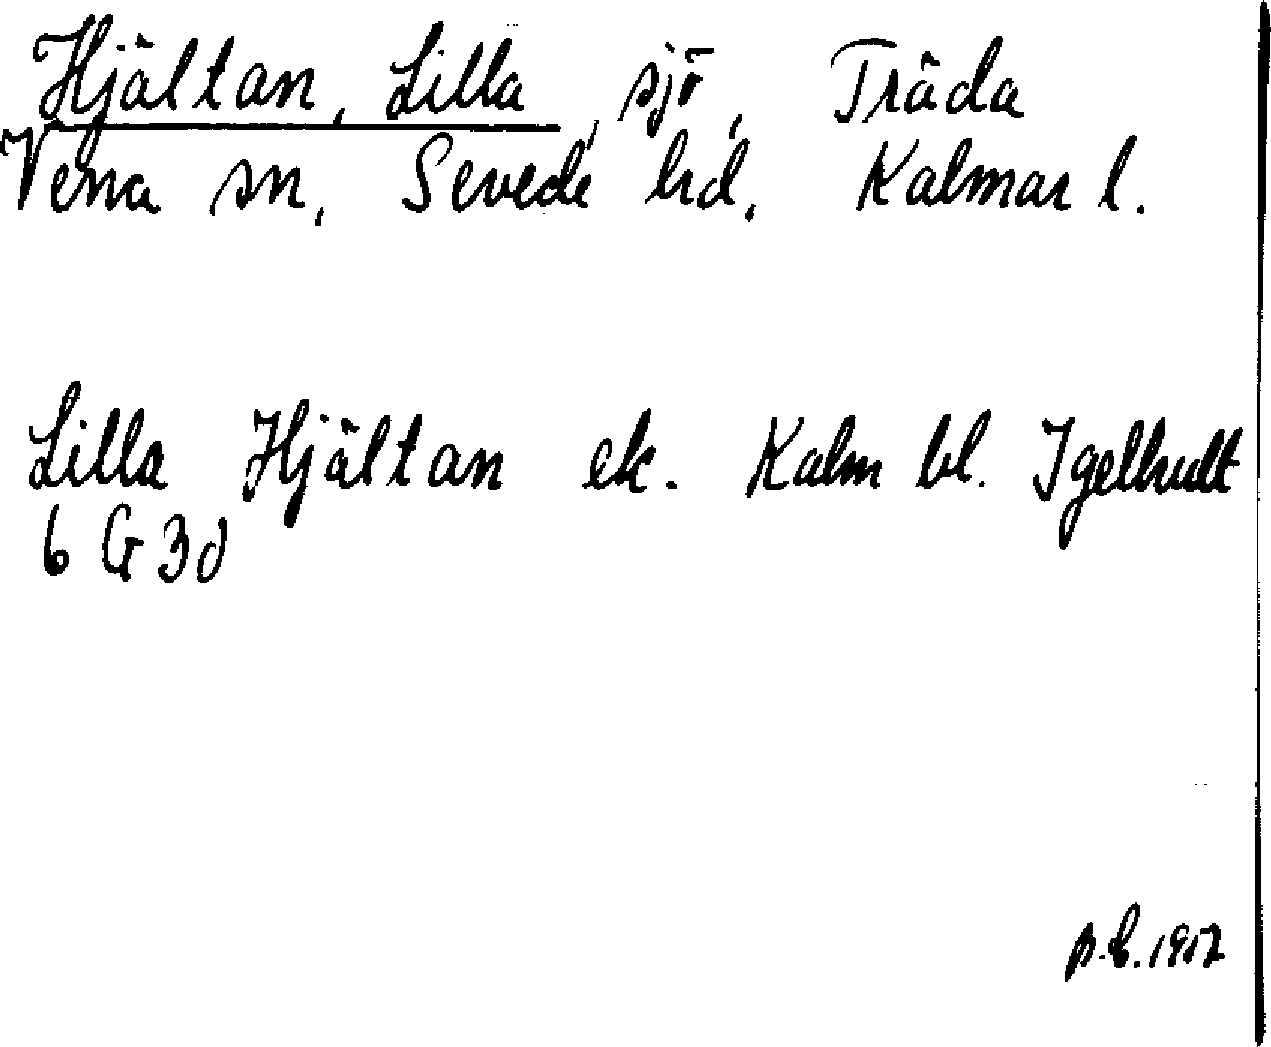 Hjältan, Lilla, sjö, Träda
Vena sn, Sevede hd, Kalmar l.
Lilla Hjältan ek. Kalm bl. Igelhult
6 G 3d